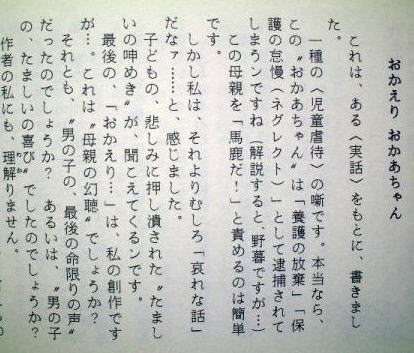 おかえり おかあちゃん
これは、ある〈実話〉をもとに、書きまし
た。
一種の〈児童虐待〉の噺です。本当なら、
この〝おかあちゃん〟は「養護の放棄」「保
護の怠慢〈ネグレクト〉」として逮捕されて
しまうンですね（解説すると、野暮ですが…）
この母親を「馬鹿だ！」と責めるのは簡単
です。
しかし私は、それよりむしろ「哀れな話」
だなァ……と、感じました。
子どもの、悲しみに押し潰された〝たまし
いの呻めき〟が、聞こえてくるンです。
最後の、「おかえり…」は、私の創作です
が…。これは〝母親の幻聴〟でしょうか？
それとも、〝男の子の、最後の命限りの声〟
だったのでしょうか？ あるいは、〝男の子
の、たましいの喜び〟でしたのでしょうか？
作者の私にも、理解りません。